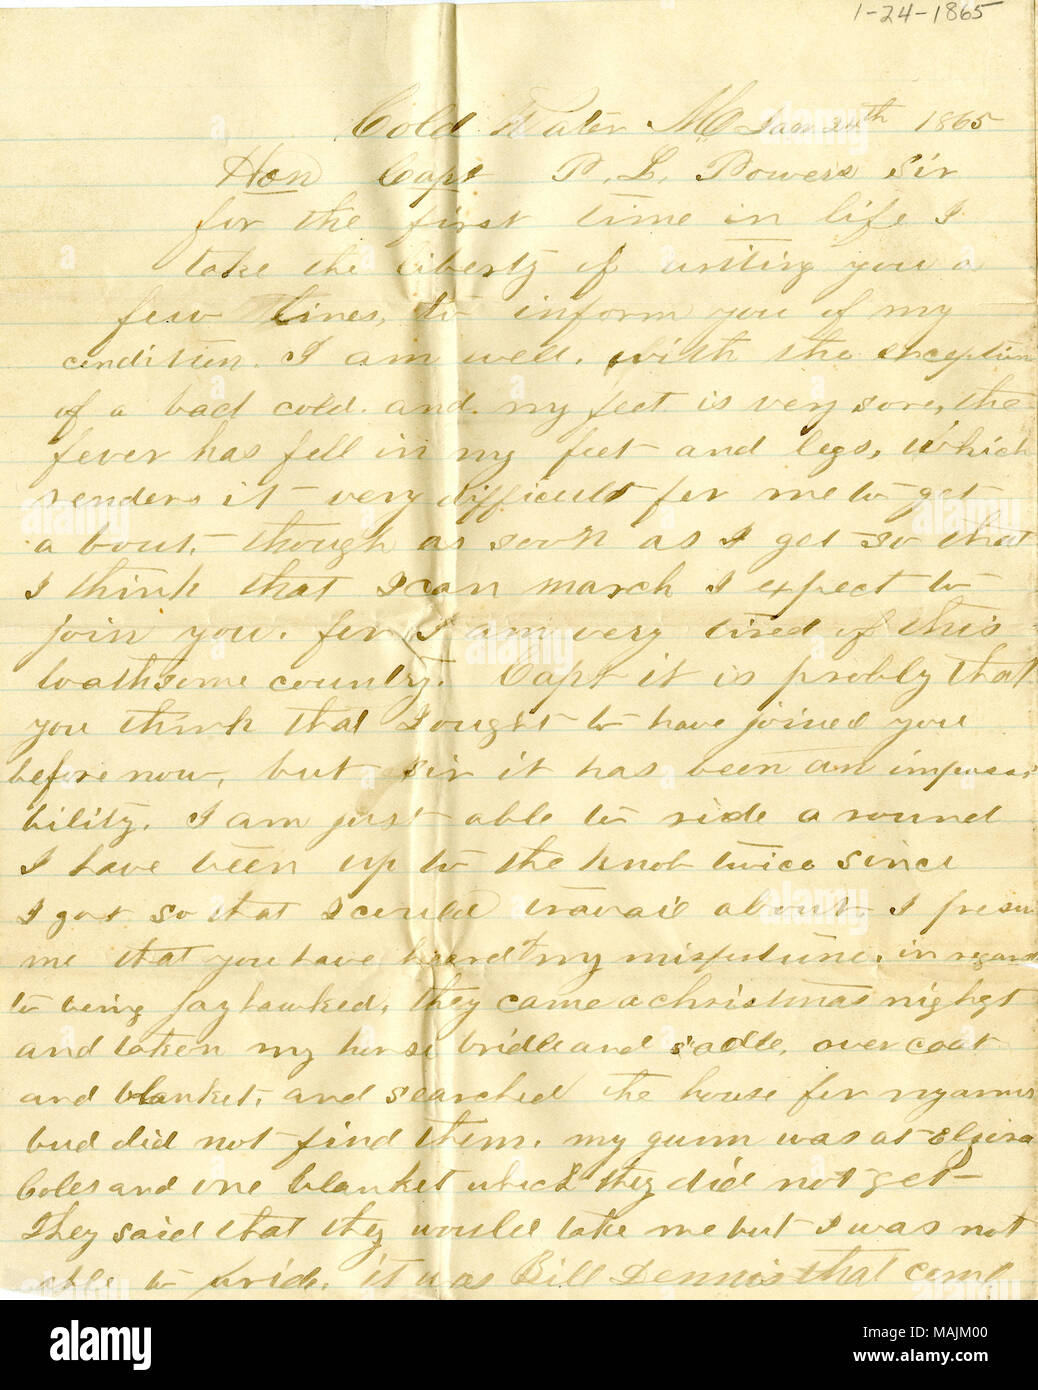 1-24-1865
Cold Water Mo Jan 24th 1865
Hon Capt P. L. Powers Sir
for the first time in life I
take the liberty of writing you a
few lines, to inform you of my
condition. I am well. with the exception
of a bad cold. and my feet is very sore, the
fever has fell in my feet and legs, which
renders it very difficult for me to get
a bout, though as soon as I get so that
I think that I can march I expect to
join you. for I am very tired of this
loathsome country. Capt it is probly that
you think that I ought to have joined you
before now, but sir it has been an impossi
bility. I am just able to ride a round
I have been up to the knob twice since
I got so that I could travail about. I presu
me that you have heard my misfutune. in regard
to being jayhawked, they came a christmas nighgt
and taken my horse bridle and sadle, over coat
and blanket, and searched the house for my arms
bud did not find them. my gunn was at
Coles and one blanket which they did not get
They said that they would take me but I was not
able to ride. it was Bill Dennis that come
alamy
Image ID: MAJM00
www.alamy.com